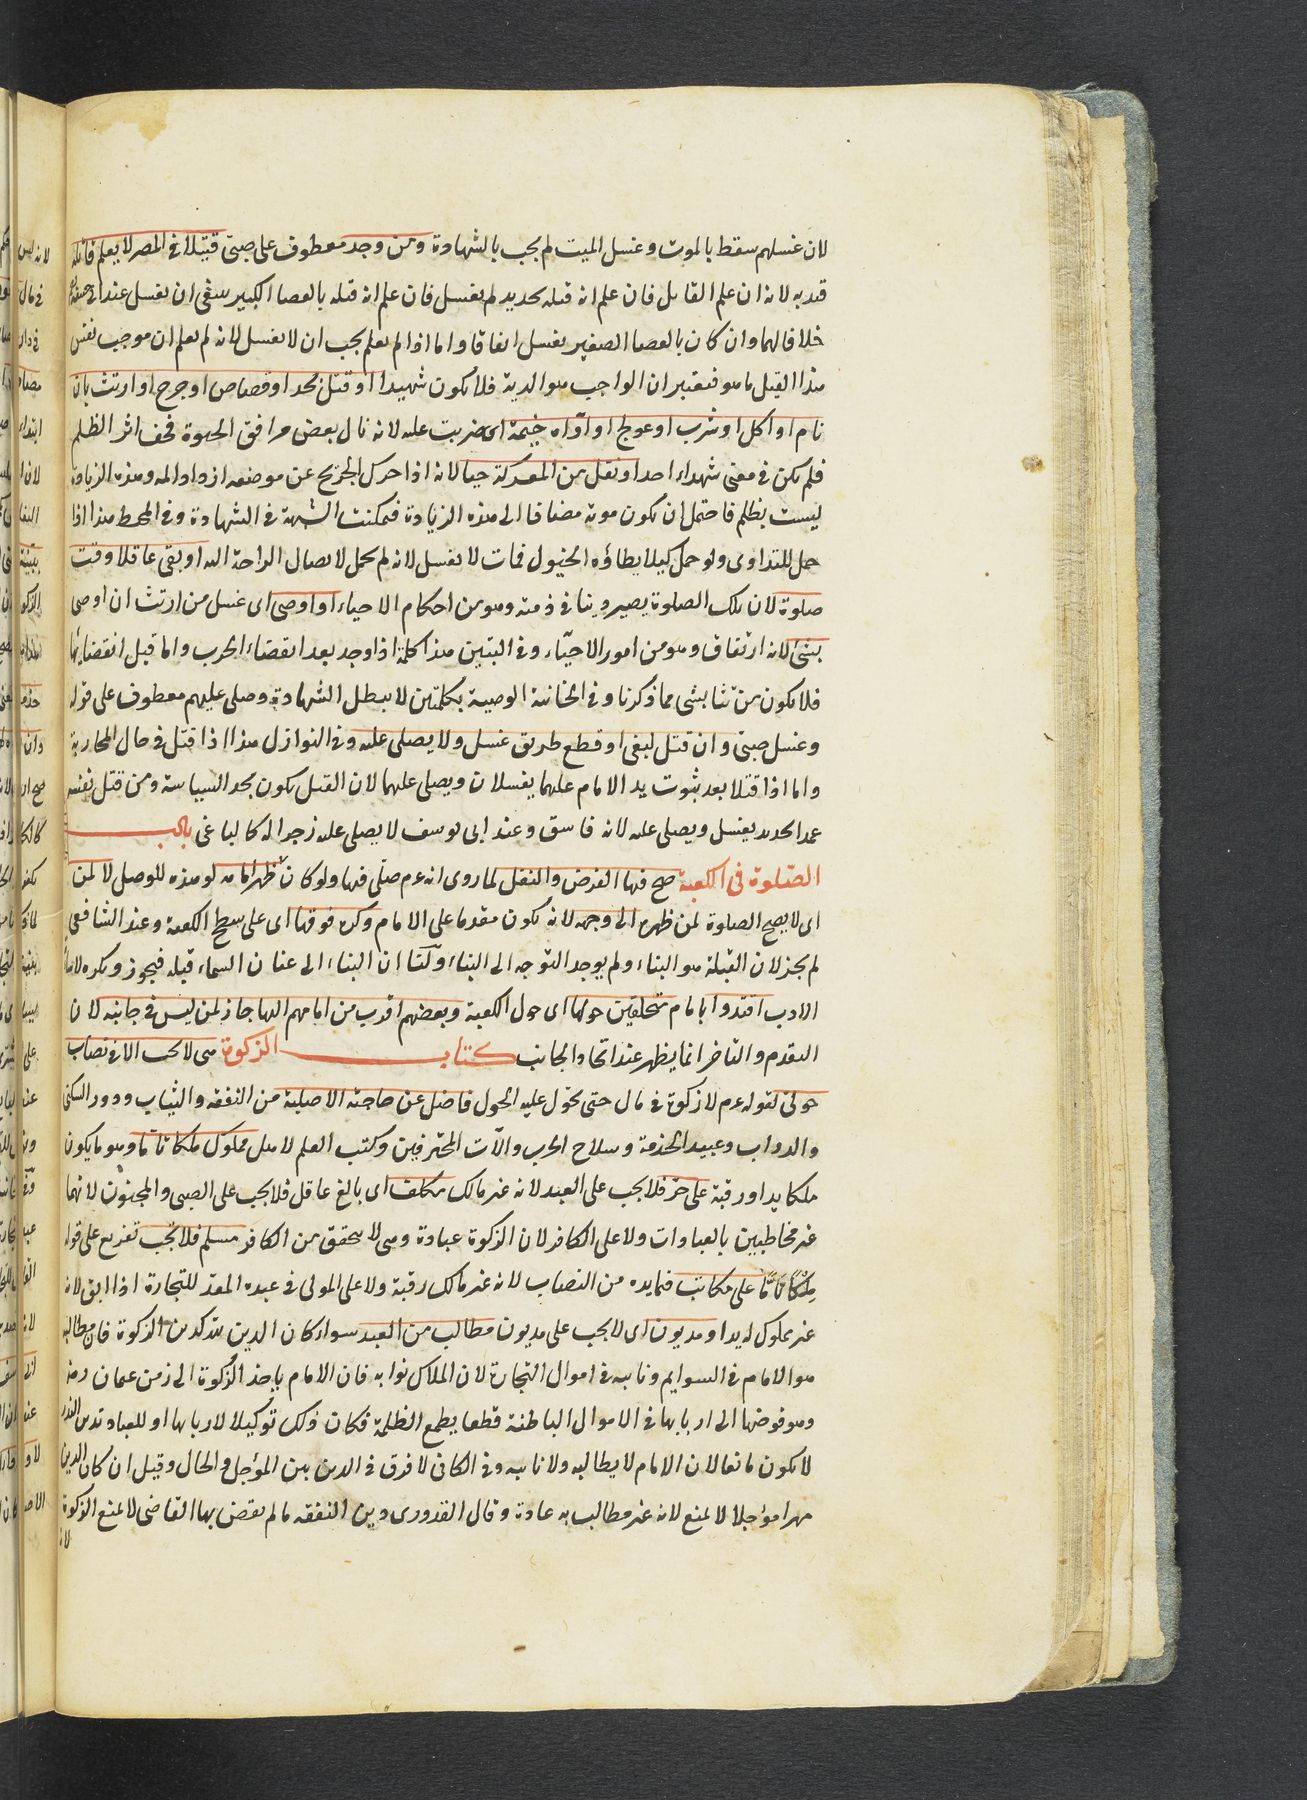 لان غسلهم سقط بالموت وغسل الميت لم يجب بالشهادة ومن وجد معطوف على صبىّ قتيلا فى المصر لا يعلم قاتله
قيد به لانه ان علم القاتل فان علم انه قتله بحديد لم يغسل فان علم انه قتله بالعصا الكبير ينبغى ان يغسل عند ابى حنيفة
خلافا لهما وان كان بالعصا الصغير يغسل اتفاقا واما اذا لم يعلم يجب ان لا يغسل لانه لم يعلم ان موجب نفس
هذا القتل ما هو فيعتبر ان الواجب هو الدية فلا يكون شهيدا او قتل بحد او قصاص او جرح او ارتث بان
نام او اكل او شرب او عولج او آواه خيمة اى ضربت عليه لانه نال بعض مرافق الحيوة فخف اثر الظلم
فلم يكن فى معنى شهداء احد او نقل من المعركة حيا لانه اذا حرك الجريح عن موضعه ازداد المه وهذه الزيادة
ليست بظلم فاحتمل ان يكون موته مضافا الى هذه الزيادة فتمكنت الشبهة فى الشهادة وفى المحيط هذا اذا
حمل للتداوى ولو حمل كيلا يطاؤه الخيول فمات لا يغسل لانه لم يحمل لايصال الراحة اليه او بقى عاقلا وقت
صلوة لان تلك الصلوة يصير دينا فى ذمته وهو من احكام الاحياء او اوصى اى غسل من ارتث ان اوصى
بشئ لانه ارتفاق وهو من امور الاحياء وفى التبيين هذا كله اذا وجد بعد انقضاء الحرب واما قبل انقضائها
فلا يكون مرتثا بشى مما ذكرنا وفى الخانية الوصية بكلمتين لا يبطل الشهادة وصلى عليهم معطوف على قوله
وغسل صبىّ وان قتل لبغى او قطع طريق غسل ولا يصلى عليه وفى النوازل هذا اذا قتل فى حال المحاربة
واما اذا قتلا بعد ثبوت يد الامام عليهما يغسلان ويصلى عليهما لان القتل يكون بحد السياسة ومن قتل نفسه
عمدا بحديد يغسل ويصلى عليه لانه فاسق وعند ابى يوسف لا يصلى عليه زجرا له كالباغى باب
الصّلوة فى الكعبة صح فيها الفرض والنفل لما روى انه عم صلّى فيها ولو كان ظهره لامامه لو هذه للوصل لا لمن
اى لا يصح الصلوة لمن ظهره الى وجهه لانه يكون مقدما على الامام وكره فوقها اى على سطح الكعبة وعند الشافعى
لم يجز لان القبلة هو البناء ولم يوجد التوجه الى البناء ولنا ان البناء الى عنان السماء قبلة فيجوز ويكره
الادب اقتدوا بامام متحلقين حولها اى حول الكعبة وبعضهم اقرب من امامهم اليها جاز لمن ليس فى جانبه لان
التقدم والتاخر انما يظهر عند اتحاد الجانب كتاب الزكوة هى لا تجب الا فى نصاب
حولىّ لقوله عم لا زكوة فى مال حتى يحول عليه الحول فاضل عن حاجته الاصلية من النفقه والثياب ودور السكنى
والدواب وعبيد الخدمة وسلاح الحرب وآلات المحترفين وكتب العلم لاهل مملوك ملكا تاما وهو ما يكون
ملكا يدا ورقبة على حرّ فلا يجب على العبد لانه غير مالك مكلف اى بالغ عاقل فلا يجب على الصبى والمجنون لانهما
غير مخاطبين بالعبادات ولا على الكافر لان الزكوة عبادة وهى لا تتحقق من الكافر مسلم فلا تجب تفريع على قوله
مِلكًا تامًّا على مكاتب فيما بيده من النصاب لانه غير مالك رقبة ولا على المولى فى عبده المعد للتجارة اذا ابق لانه
غير مملوك له يدا ومديون اى لا يجب على مديون مطالب من العبد سواء كان الدين لله كدين الزكوة فان مطالبه
هو الامام فى السوايم ونائبه فى اموال التجارة لان الملاك نوابه فان الامام ياخذ الزكوة الى زمن عثمان رضه
وهو فوضها الى اربابها فى الاموال الباطنة قطعا لطمع الظلمة فكان ذلك توكيلا لاربابها او للعباد فدين النذر
لا يكون مانعا لان الامام لا يطالبه ولا نائبه وفى الكافى لا فرق فى الدين بين المؤجل والحال وقيل ان كان الدين
مهرا مؤجلا لا يمنع لانه غير مطالب به عادة وقال القدورى دين النفقه ما لم يقض بها القاضى لا يمنع الزكوة
لان